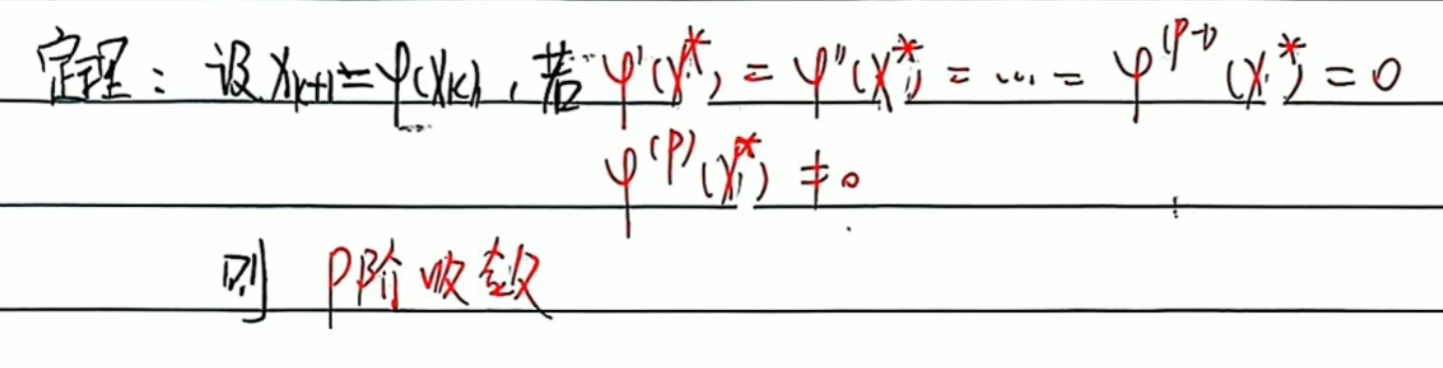 定理：设 xₖ₊₁=φ(xₖ)，若 φ'(x*) = φ''(x*) = ... = φ⁽ᵖ⁻¹⁾(x*) = 0
φ⁽ᵖ⁾(x*) ≠ 0
则 P阶收敛